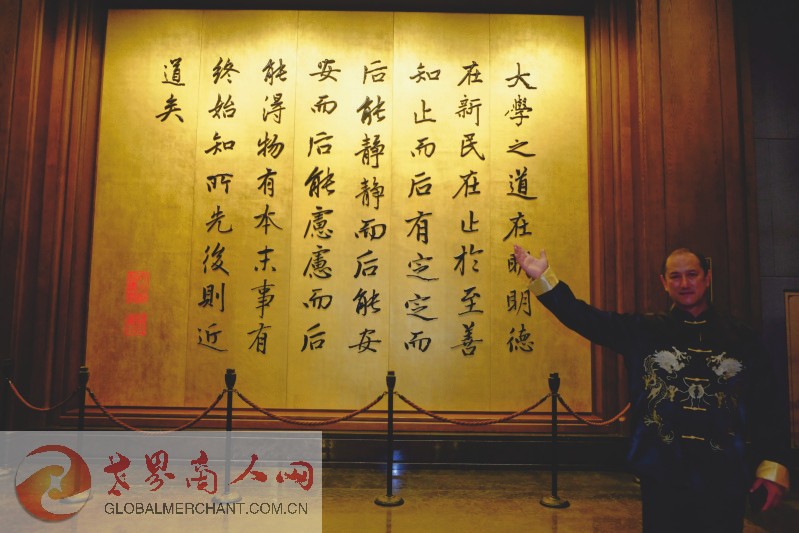 大學之道在明明德
在新民在止於至善
知止而后有定定而
后能静静而后能安
安而后能慮慮而后
能得物有本末事有
終始知所先後則近
道矣
世界商人网
GLOBALMERCHANT.COM.CN